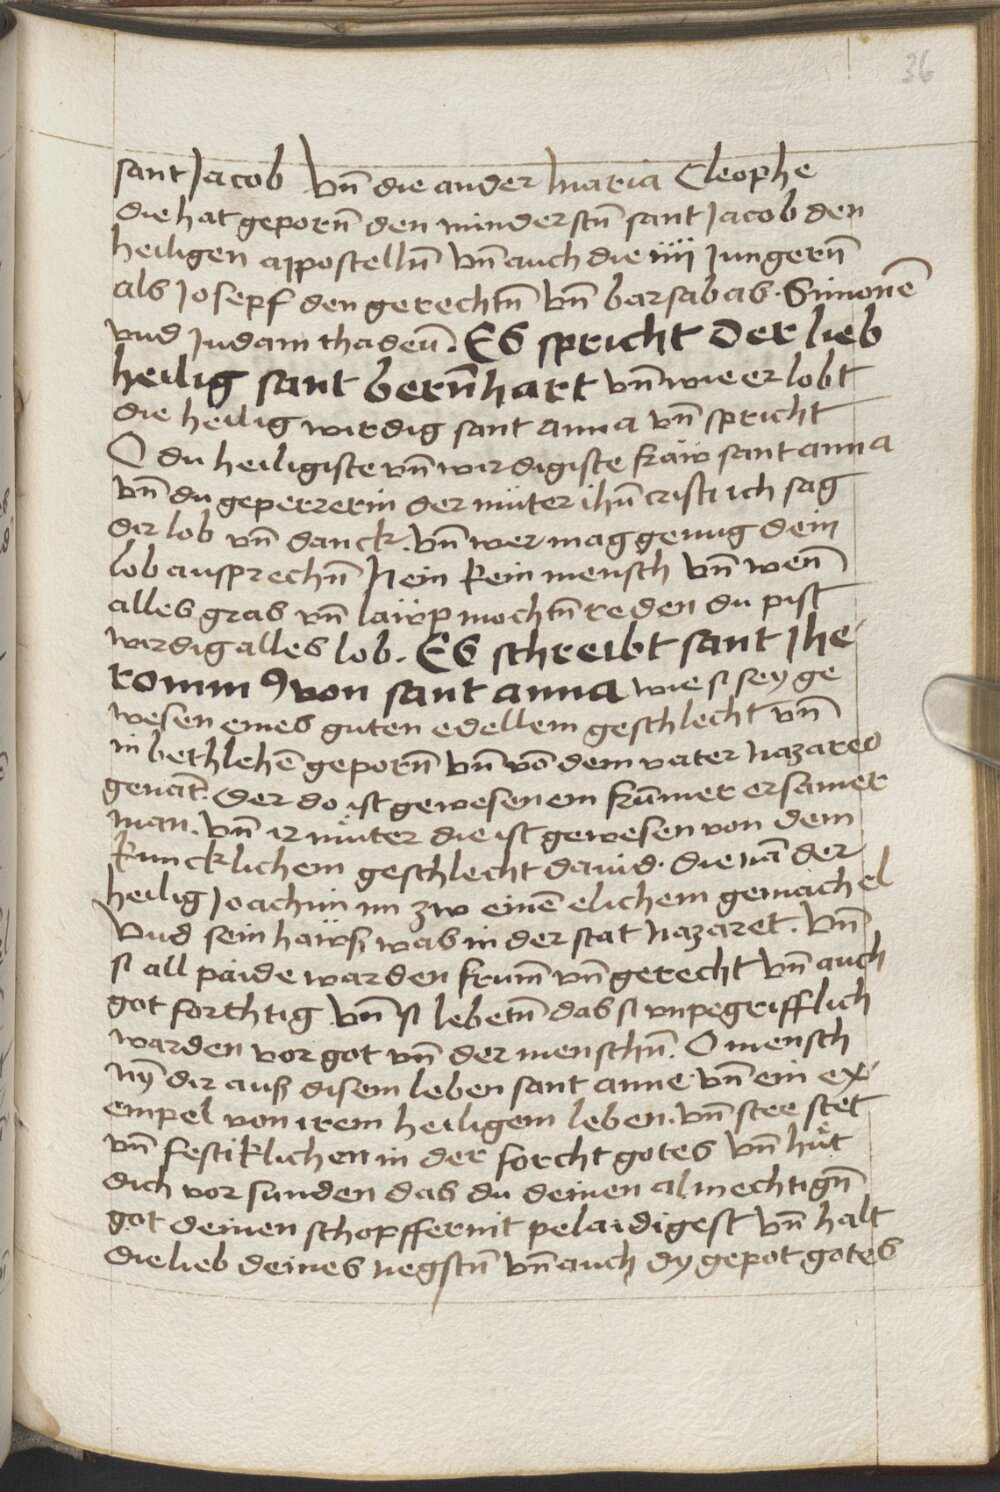 36
sant Jacob Vn̄ die ander maria Cleophe
die hat geporn̄ den minderstn̄ sant Jacob den
heiligen apostelln̄ vn̄ auch die iiij Jungern̄
als Josepf den gerechtn̄ vn̄ barsabas. Simonē
vnd Judam thadeū. Es spricht der lieb
heilig sant bern̄hart vn̄ wie er lobt
die heilig wirdig sant anna vn̄ spricht
O du heiligiste vn̄ wirdigiste fraẅ sant anna
vn̄ du geperrerin der muter ihū cristi ich sag
dir lob vn̄ danck. vn̄ wer mag genug dein
lob ausprechn̄ Nein kein mensch vn̄ wen̄
alles gras vn̄ laẅp mochtn̄ reden du pist
wirdig alles lob. Es schreibt sant Jhe
rommꝰ von sant anna wie si sey ge
wesen eines guten edellem geschlecht vn̄
in bethlehē geporn̄ vn̄ vō dem vater nazareo
genāt. der do ist gewesen ein frūmer ersamer
man. vn̄ ir muter die ist gewesen von dem
kuncklichem geschlecht dauid. die nā der
heilig Joachim im zw einē elichem gemachel
Vnd sein haẅß was in der stat nazaret. vn̄
si all paide warden frum̄ vn̄ gerecht vn̄ auch
got forchtig vn̄ si lebetn̄ das si vnpegrifflich
warden vor got vn̄ der menschn̄. O mensch
nȳ dir auß disem leben sant anne vn̄ ein ex
empel von irem heiligem leben. vn̄ stee stet
vn̄ festiklichen in der forcht gotes vn̄ hüt
dich vor sunden das du deinen almechtign̄
got deinen schopffer nit pelaidigest vn̄ halt
die lieb deines negstn̄ vn̄ auch dy gepot gotes